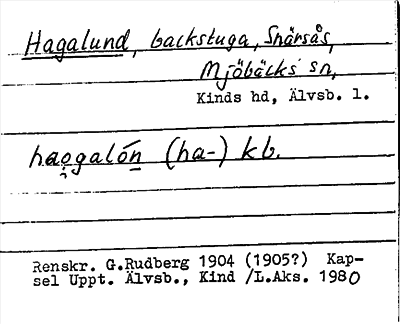 Hagalund, backstuga, Snärsås,
Mjöbäcks sn,
Kinds hd, Älvsb. l.
haogalón (ha-) kb.
Renskr. G.Rudberg 1904 (1905?) Kap-
sel Uppt. Älvsb., Kind /L.Aks. 1980